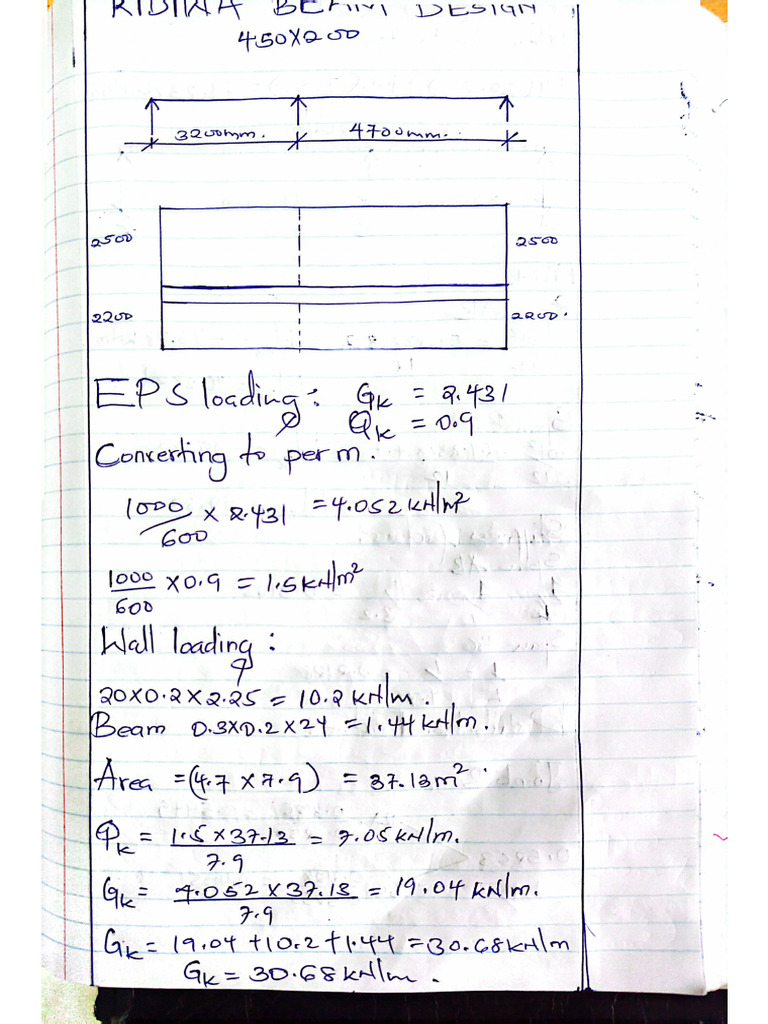 BEAM DESIGN
450X200
3200mm. 4700mm.
2500 2500
2200 2200.
EPS loading: Gk = 2.431
Qk = 0.9
Converting to per m.
1000/600 x 2.431 = 4.052 kN/m²
1000/600 x0.9 = 1.5kN/m²
Wall loading:
20x0.2x2.25 = 10.2 kN/m.
Beam 0.3x0.2x24 = 1.44 kN/m.
Area =(4.7 x 7.9) = 37.13m².
Qk = 1.5x37.13/7.9 = 7.05kN/m.
Gk = 4.052 x 37.13/7.9 = 19.04 kN/m.
Gk = 19.04 +10.2+1.44 =30.68kN/m
Gk = 30.68kN/m.